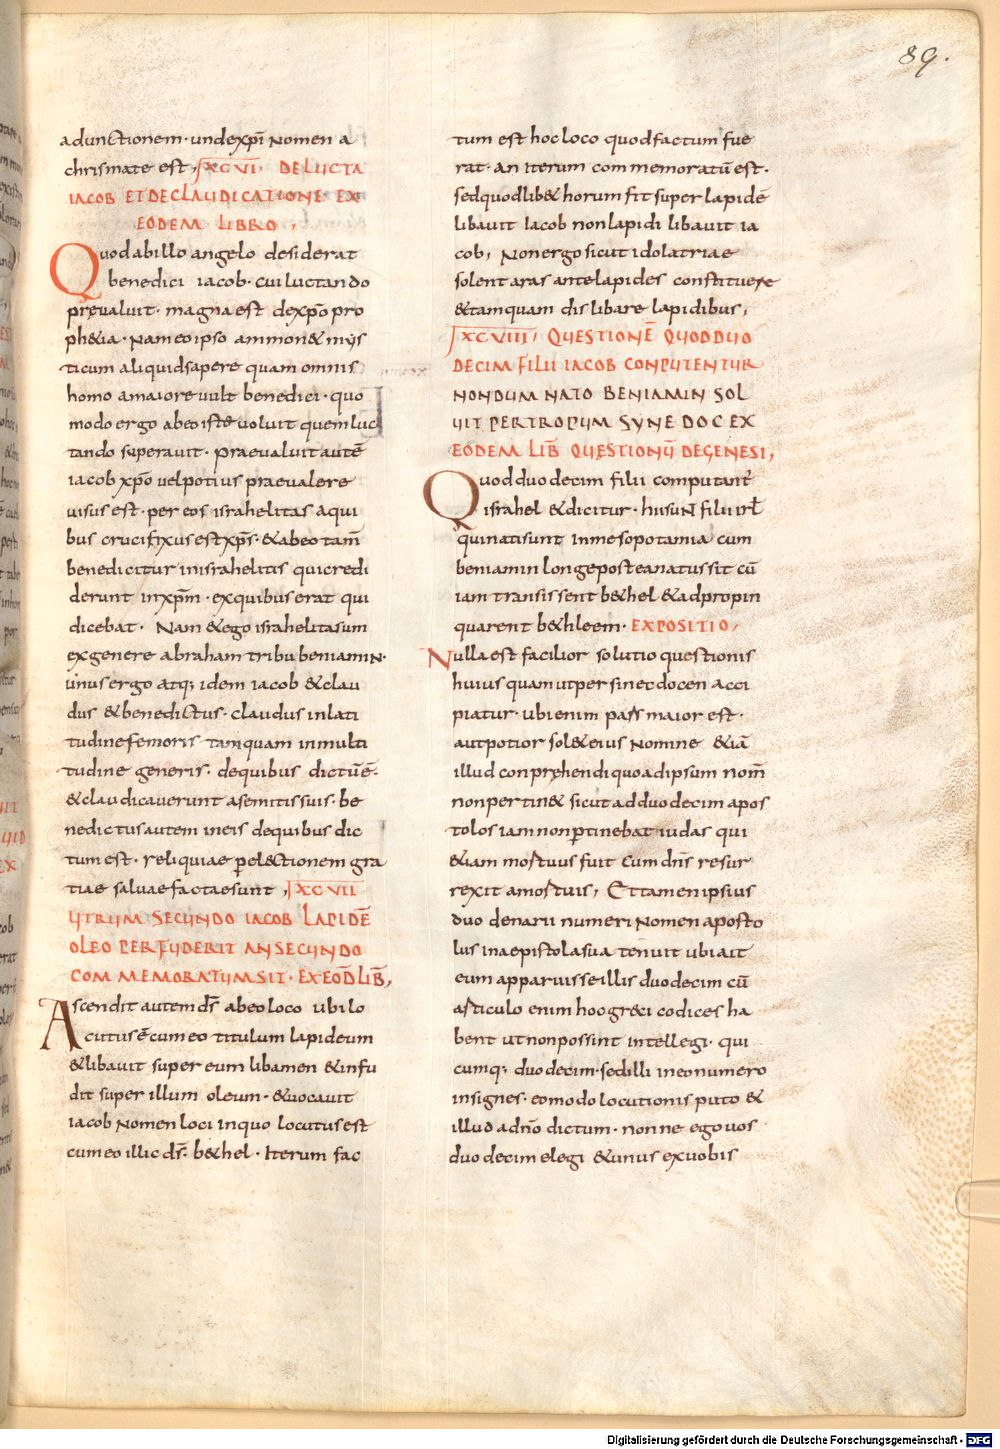 89.
adunctionem· undexp̄i Nomen a
chrismate est, IXCVI, DE LUCTA
IACOB ET DE CLAUDICATIONE· EX
EODEM LIBRO,
Quod ab illo angelo desiderat
benedici iacob· cui luctando
prevaluit· magna est dexp̄o pro
ph&ia· Nam eo ipso ammon& mys
ticum aliquid sapere quam omnis
homo a maiore vult benedici· quo
modo ergo ab eo iste voluit quem luc
tando superavit· praevaluit autē
iacob xp̄o vel potius praevalere
visus est· per eos israhelitas a qui
bus crucifixus est xp̄s· & ab eo tam̄
benedicitur in israhelitis qui credi
derunt in xp̄m· ex quibus erat qui
dicebat· Nam & ego israhelita sum
ex genere abraham tribu beniamin·
unus ergo atq; idem iacob & clau
dus & benedictus· claudus in lati
tudine femoris tamquam in multi
tudine generis· de quibus dictū ē·
& claudicaverunt a semitis suis· be
nedictus autem in eis de quibus dic
tum est· reliquiae per electionem gra
tiae salvae factae sunt, IXCVII
UTRUM SECUNDO IACOB LAPIDĒ
OLEO PERFUDERIT AN SECUNDO
COMMEMORATUM SIT· EX EOD̄ LIB̄,
Ascendit autem d̄s ab eo loco ubi lo
cutus ē cum eo titulum lapideum
& libavit super eum libamen & infu
dit super illum oleum· & vocavit
iacob Nomen loci in quo locutus est
cum eo illic d̄s· b&hel· Iterum fac
tum est hoc loco quod factum fue
rat· an iterum commemoratū est·
sed quodlib& horum fit super lapidē
libavit Iacob non lapidi libavit ia
cob, Non ergo sicut idolatriae
solent aras ante lapides constituere
& tamquam dis libare lapidibus,
IXCVIII, QUESTIONĒ QUOD DUO
DECIM FILII IACOB CONPUTENTUR
NONDUM NATO BENIAMIN SOL
UIT PER TROPUM SYNEDOC EX
EODEM LIB̄ QUESTIONŪ DE GENESI,
Quod duodecim filii computant̄
israhel & dicitur· hii suN filii irl̄
qui nati sunt in mesopotamia cum
beniamin longe postea natus sit cū
iam transissent b&hel & adpropin
quarent b&hleem· EXPOSITIO,
Nulla est facilior solutio questionis
huius quam ut per sinecdocen acci
piatur· ubi enim pars maior est·
aut potior sol& eius Nomine &iā
illud conprehendi quo ad ipsum nom̄
non pertin& sicut ad duodecim apos
tolos iam non pertinebat iudas qui
&iam mortuus fuit cum dn̄s resur
rexit a mortuis, Et tamen ipsius
duodenarii numeri Nomen aposto
lus in aepistola sua tenuit ubi ait
eum apparuisse illis duodecim cū
articulo enim hoc greci codices ha
bent ut non possint intellegi· qui
cumq; duodecim· sed illi in eo numero
insignes· eo modo locutionis puto &
illud a dn̄o dictum· nonne ego vos
duodecim elegi & unus ex vobis
Digitalisierung gefördert durch die Deutsche Forschungsgemeinschaft - DFG